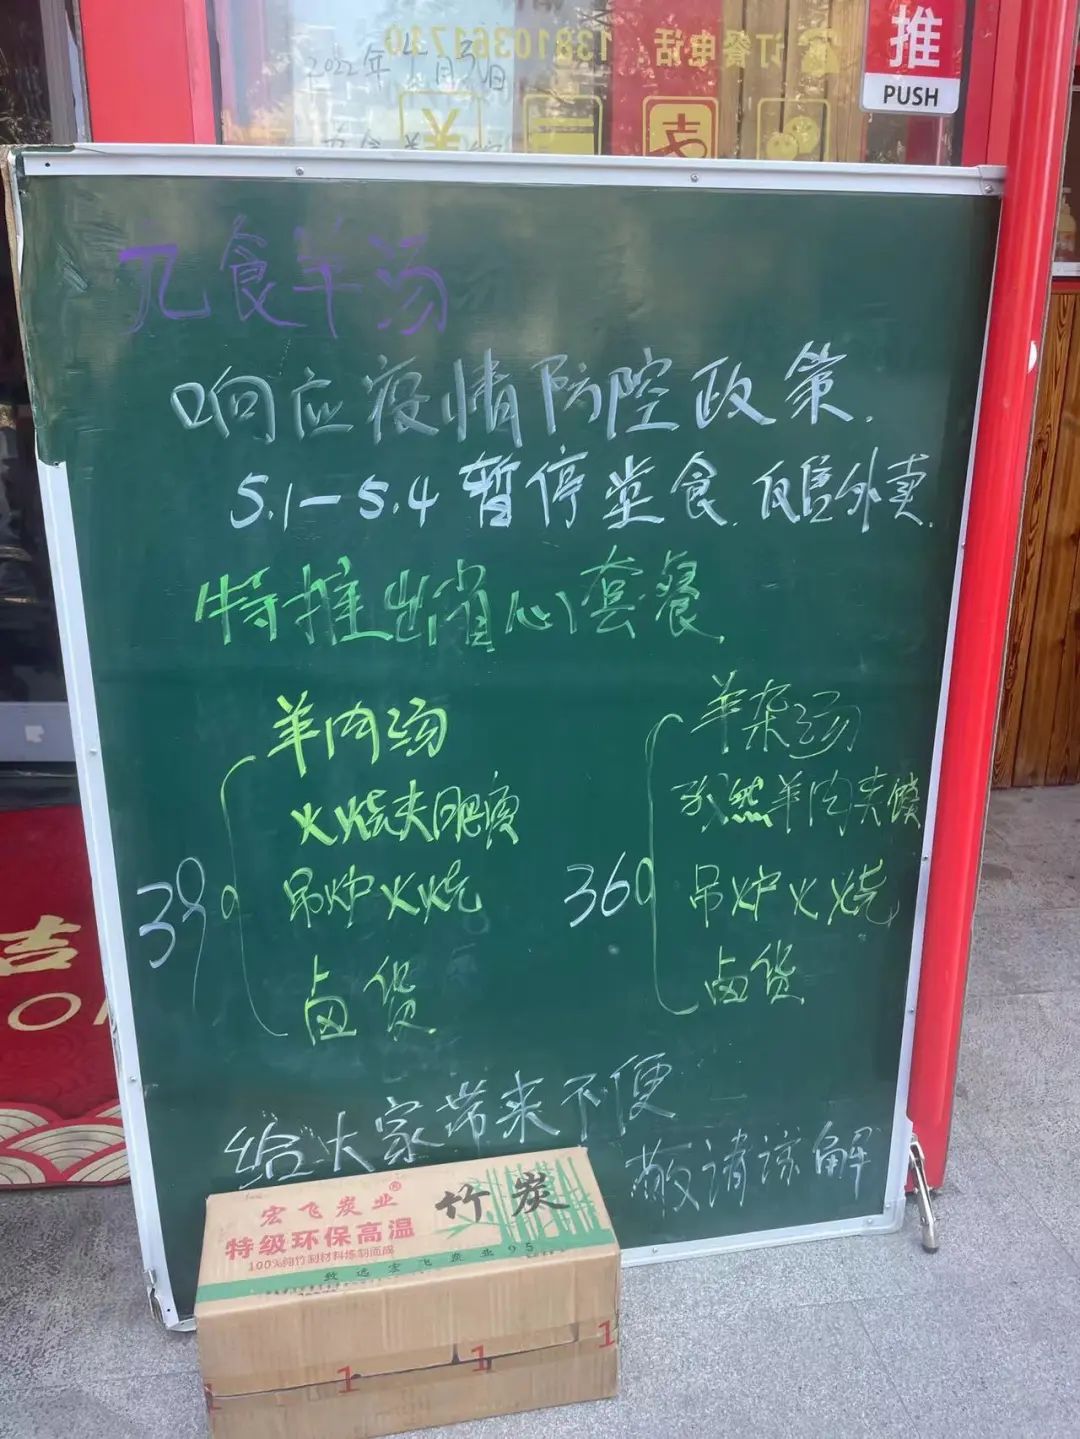 推
PUSH
订餐电话：13810361730
2022年4月30日
九食羊汤
响应疫情防控政策.
5.1-5.4 暂停堂食.仅售外卖.
特推出省心套餐.
39
羊肉汤
火烧夹肥瘦
吊炉火烧
卤货
36
羊杂汤
孜然羊肉夹馍
吊炉火烧
卤货
给大家带来不便
敬请谅解
宏飞炭业®
竹炭
特级环保高温
100%纯竹制材料炼制而成
致远宏飞炭业95
1 1 1
吉